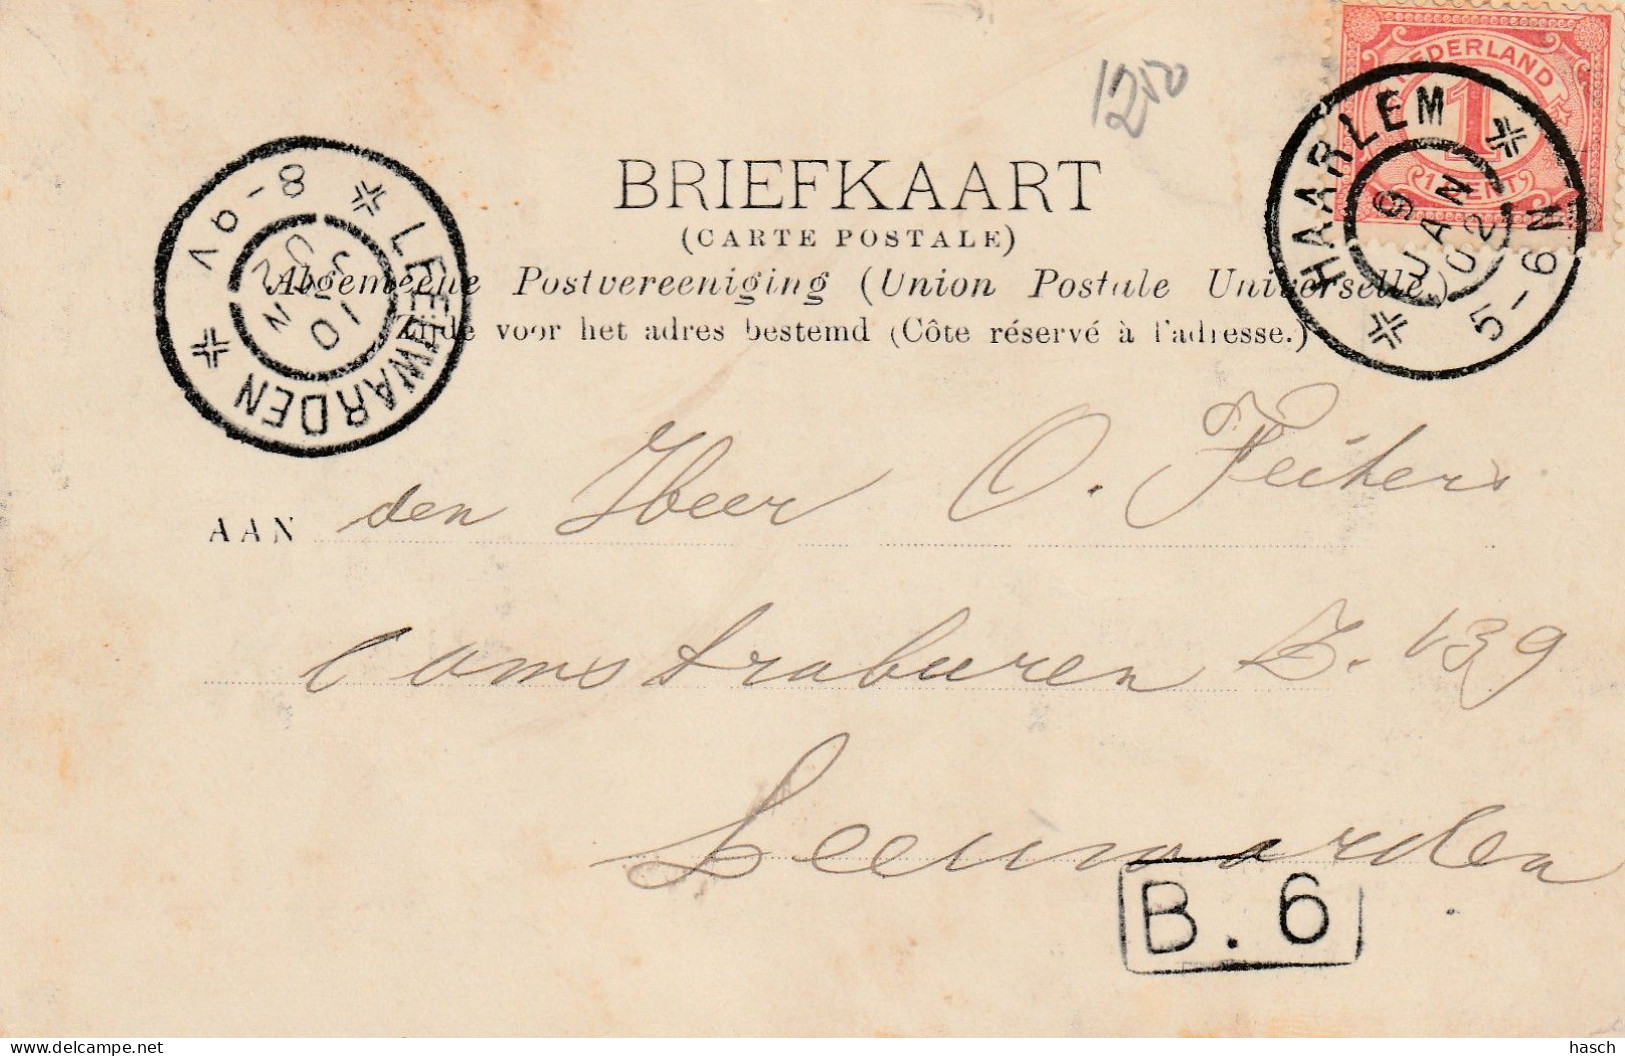 1250
NEDERLAND
1
1 CENT
HAARLEM
9 JAN 02
5-6N
LEEUWARDEN
10 JAN 02
8-9V
BRIEFKAART
(CARTE POSTALE)
Algemeene Postvereeniging (Union Postale Universelle)
Zijde voor het adres bestemd (Côte réservé à l'adresse.)
AAN den Heer O.
Camstraburen Z. 139
Leeuwarden
B.6
hasch